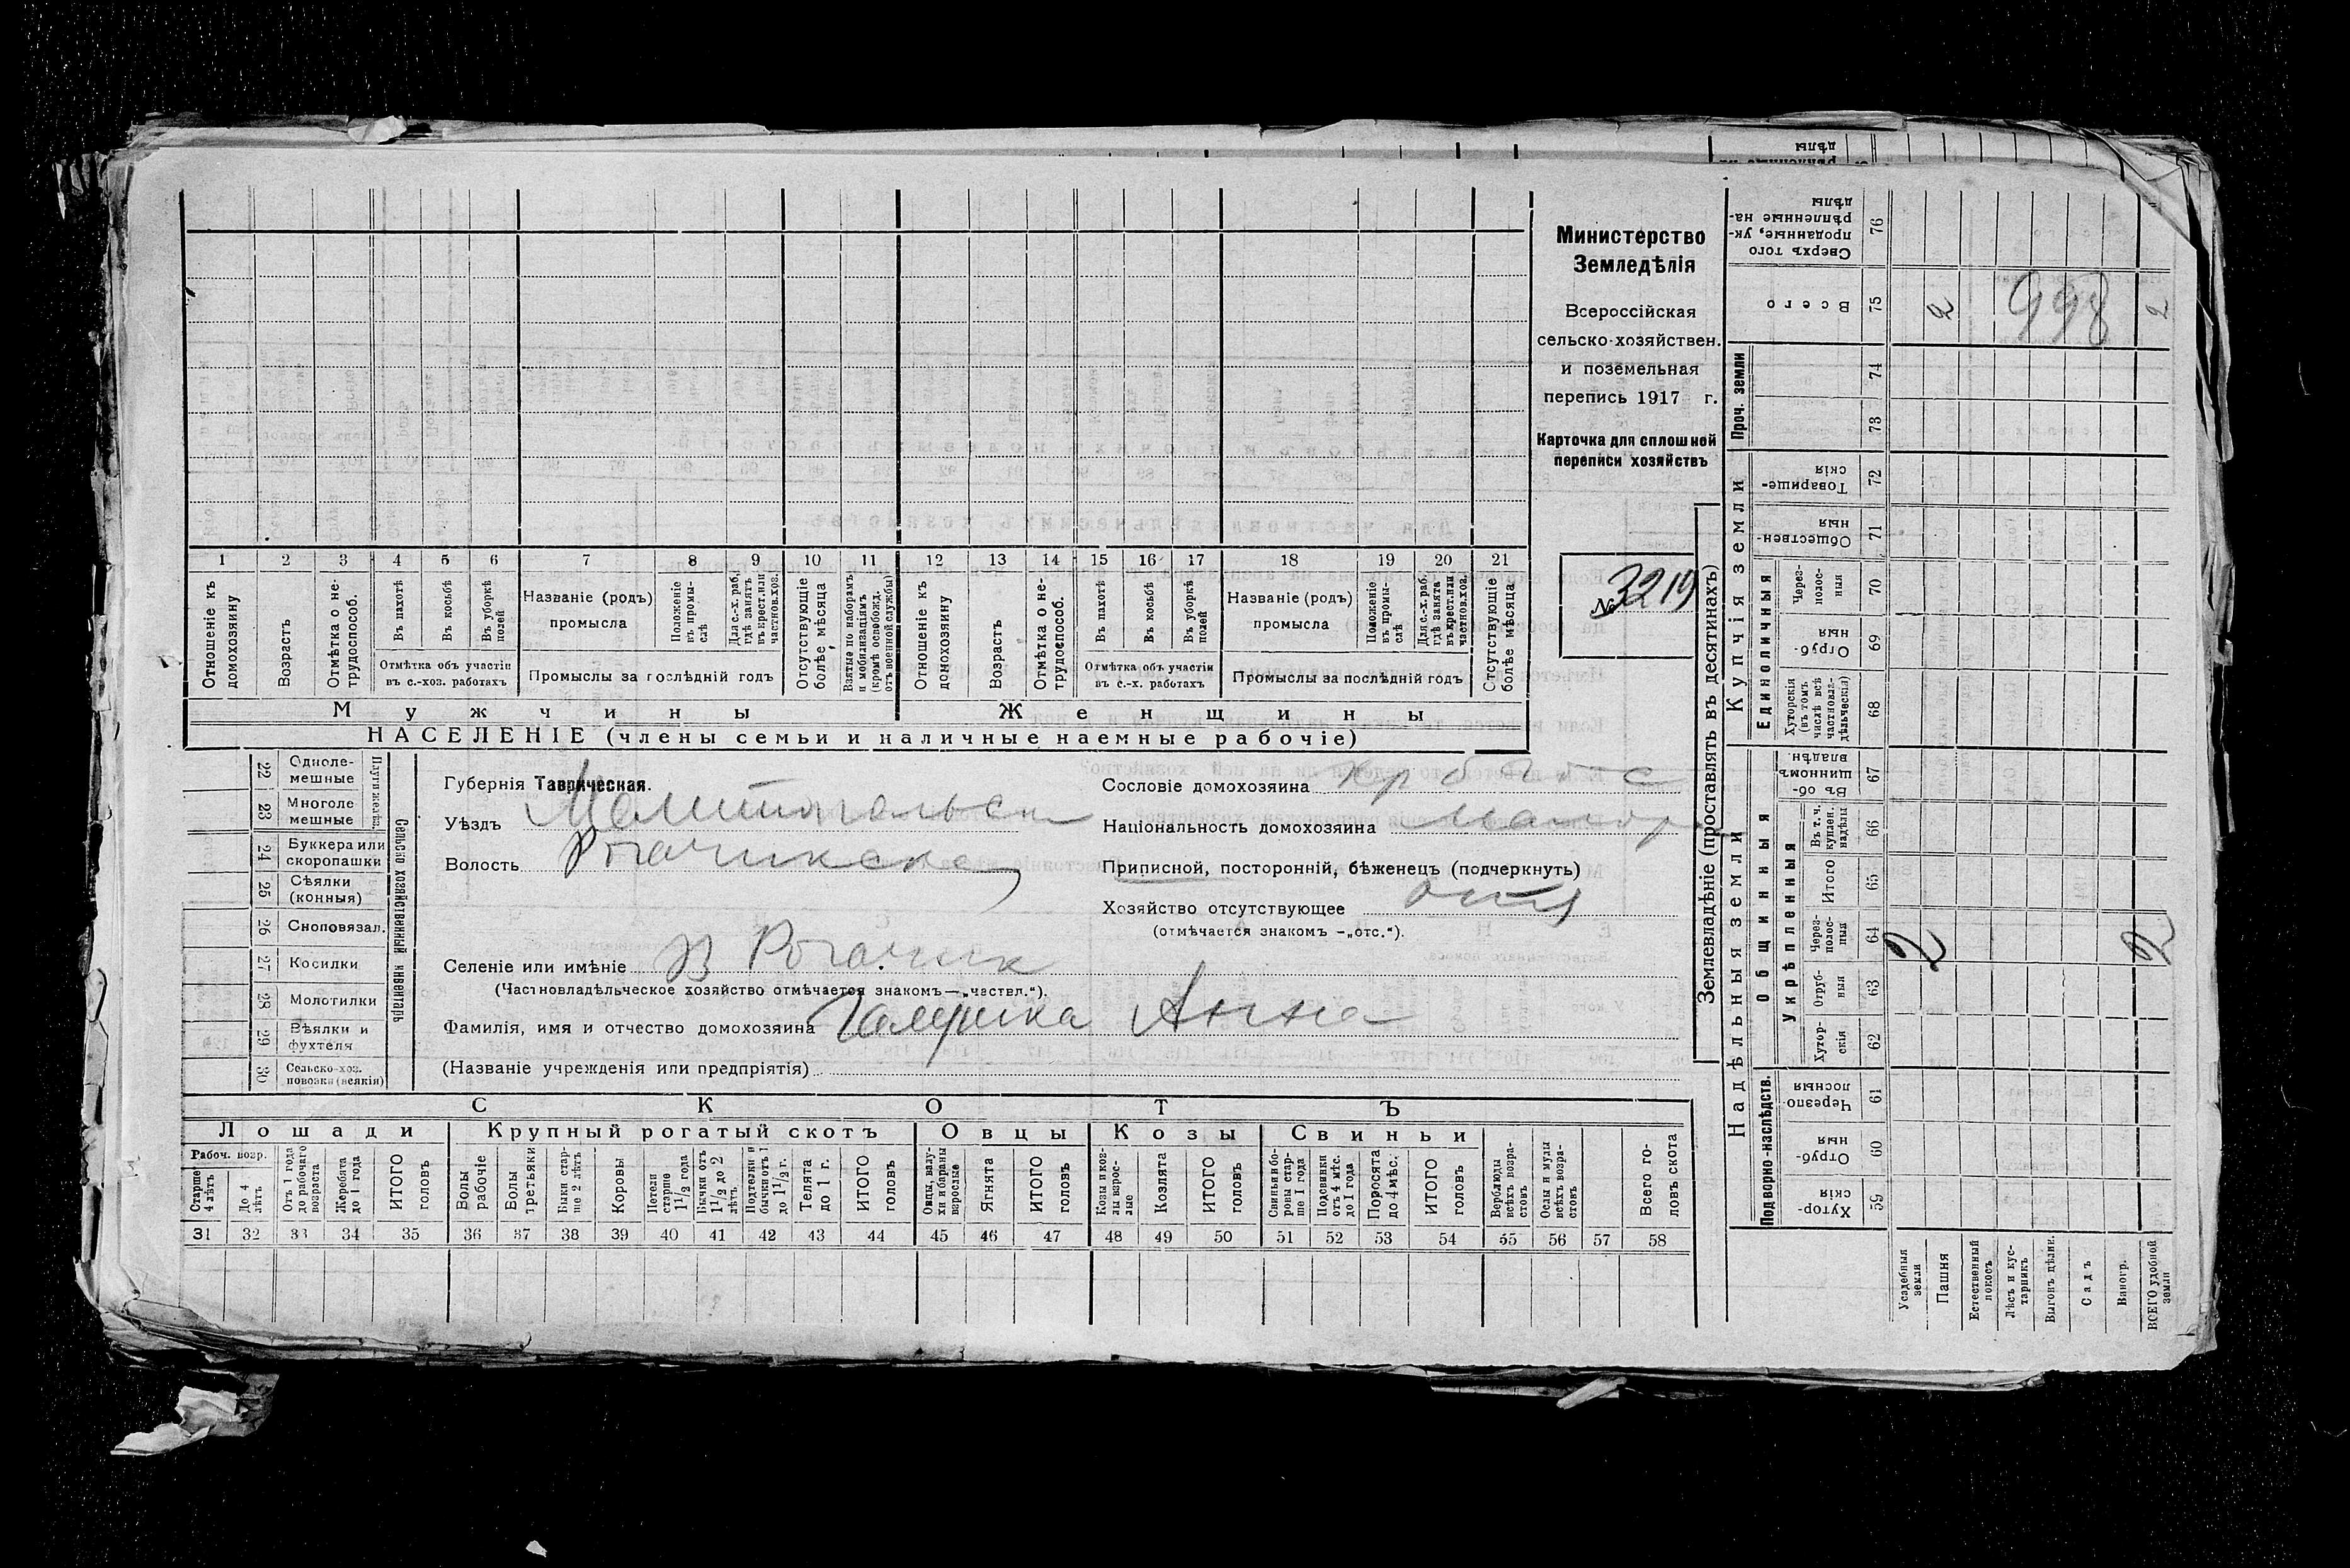 дѣлы
Министерство
Земледѣлія
Всероссійская
сельско-хозяйствен.
и поземельная
перепись 1917 г.
Карточка для сплошной
переписи хозяйствъ
№ 3219
1 2 3 4 5 6 7 8 9 10 11 12 13 14 15 16 17 18 19 20 21
Отношеніе къ домохозяину
Возрастъ
Отмѣтка о нетрудоспособ.
Въ пахотѣ
Въ косьбѣ
Въ уборкѣ полей
Отмѣтка объ участіи
въ с.-хоз. работахъ
Названіе (родъ)
промысла
Положеніе въ промыслѣ
Для с.-х. раб., гдѣ занятъ въ крест. или частнов. хоз.
Промыслы за послѣдній годъ
Отсутствующіе болѣе мѣсяца
Взятые по наборамъ и мобилизаціямъ (кромѣ освобожд. отъ военной службы)
Отношеніе къ домохозяину
Возрастъ
Отмѣтка о нетрудоспособ.
Въ пахотѣ
Въ косьбѣ
Въ уборкѣ полей
Отмѣтка объ участіи
въ с.-х. работахъ
Названіе (родъ)
промысла
Положеніе въ промыслѣ
Для с.-х. раб. гдѣ занята въ крест. или частнов. хоз.
Промыслы за послѣдній годъ
Отсутствующіе болѣе мѣсяца
Мужчины Женщины
НАСЕЛЕНІЕ (члены семьи и наличные наемные рабочіе)
22 Однолемешные
23 Многолемешные
24 Буккера или скоропашки
25 Сѣялки (конныя)
26 Сноповязал.
27 Косилки
28 Молотилки
29 Вѣялки и фухтеля
30 Сельско-хоз. повозки (всякія)
Сельско хозяйственный инвентарь
Губернія Таврическая.
Уѣздъ Мелитопольск
Волость Рогачикская
Селеніе или имѣніе В Рогачик
(Частновладѣльческое хозяйство отмѣчается знакомъ—„частвл.“).
Фамилія, имя и отчество домохозяина Галушка Анна
(Названіе учрежденія или предпріятія)
Сословіе домохозяина
Національность домохозяина
Приписной, посторонній, бѣженецъ (подчеркнуть)
Хозяйство отсутствующее
(отмѣчается знакомъ —„отс.“).
СКОТЪ
Лошади Крупный рогатый скотъ Овцы Козы Свиньи
Рабоч. возр.
Старше 4 лѣтъ
До 4 лѣтъ
Отъ 1 года до рабочаго возраста
Жеребята до 1 года
ИТОГО головъ
Волы рабочіе
Волы третьяки
Быки старше 2 лѣтъ
Коровы
Нетели старше 1 1/2 года
Бычки отъ 1 1/2 до 2 лѣтъ
Подтелки и бычки отъ 1 до 1 1/2 г.
Телята до 1 г.
ИТОГО головъ
Овцы, валухи и бараны взрослые
Ягнята
ИТОГО головъ
Козы и козлы взрослые
Козлята
ИТОГО головъ
Свиньи и боровы старше 1 года
Подсвинки отъ 4 мѣс. до 1 года
Поросята до 4 мѣс.
ИТОГО головъ
Верблюды всѣхъ возрастовъ
Ослы и мулы всѣхъ возрастовъ
Всего головъ скота
31 32 33 34 35 36 37 38 39 40 41 42 43 44 45 46 47 48 49 50 51 52 53 54 55 56 57 58
Землевладѣніе (проставлять въ десятинахъ)
Надѣльныя земли
Купчія земли
Проч. земли
Подворно-наслѣдств.
Общинныя
Укрѣпленныя
Единоличныя
Сверхъ того проданные, укрѣпленные надѣлы 76
Всего 75 2 998 2
74
73
Товарищескія 72
Общественныя 71
Черезполосныя 70
Отрубныя 69
Хуторскія (въ томъ числѣ всѣ частновладѣльческія) 68
Въ общинномъ владѣн. 67
Въ т. ч. куплен. надѣлы 66
Итого 65
Черезполосныя 64 2 2
Отрубныя 63
Хуторскія 62
Черезполосныя 61
Отрубныя 60
Хуторскія 59
Усадебныя земли
Пашня
Естественный покосъ
Лѣсъ и кустарникъ
Выгонъ цѣлин.
Садъ
Виногр.
ВСЕГО удобной земли